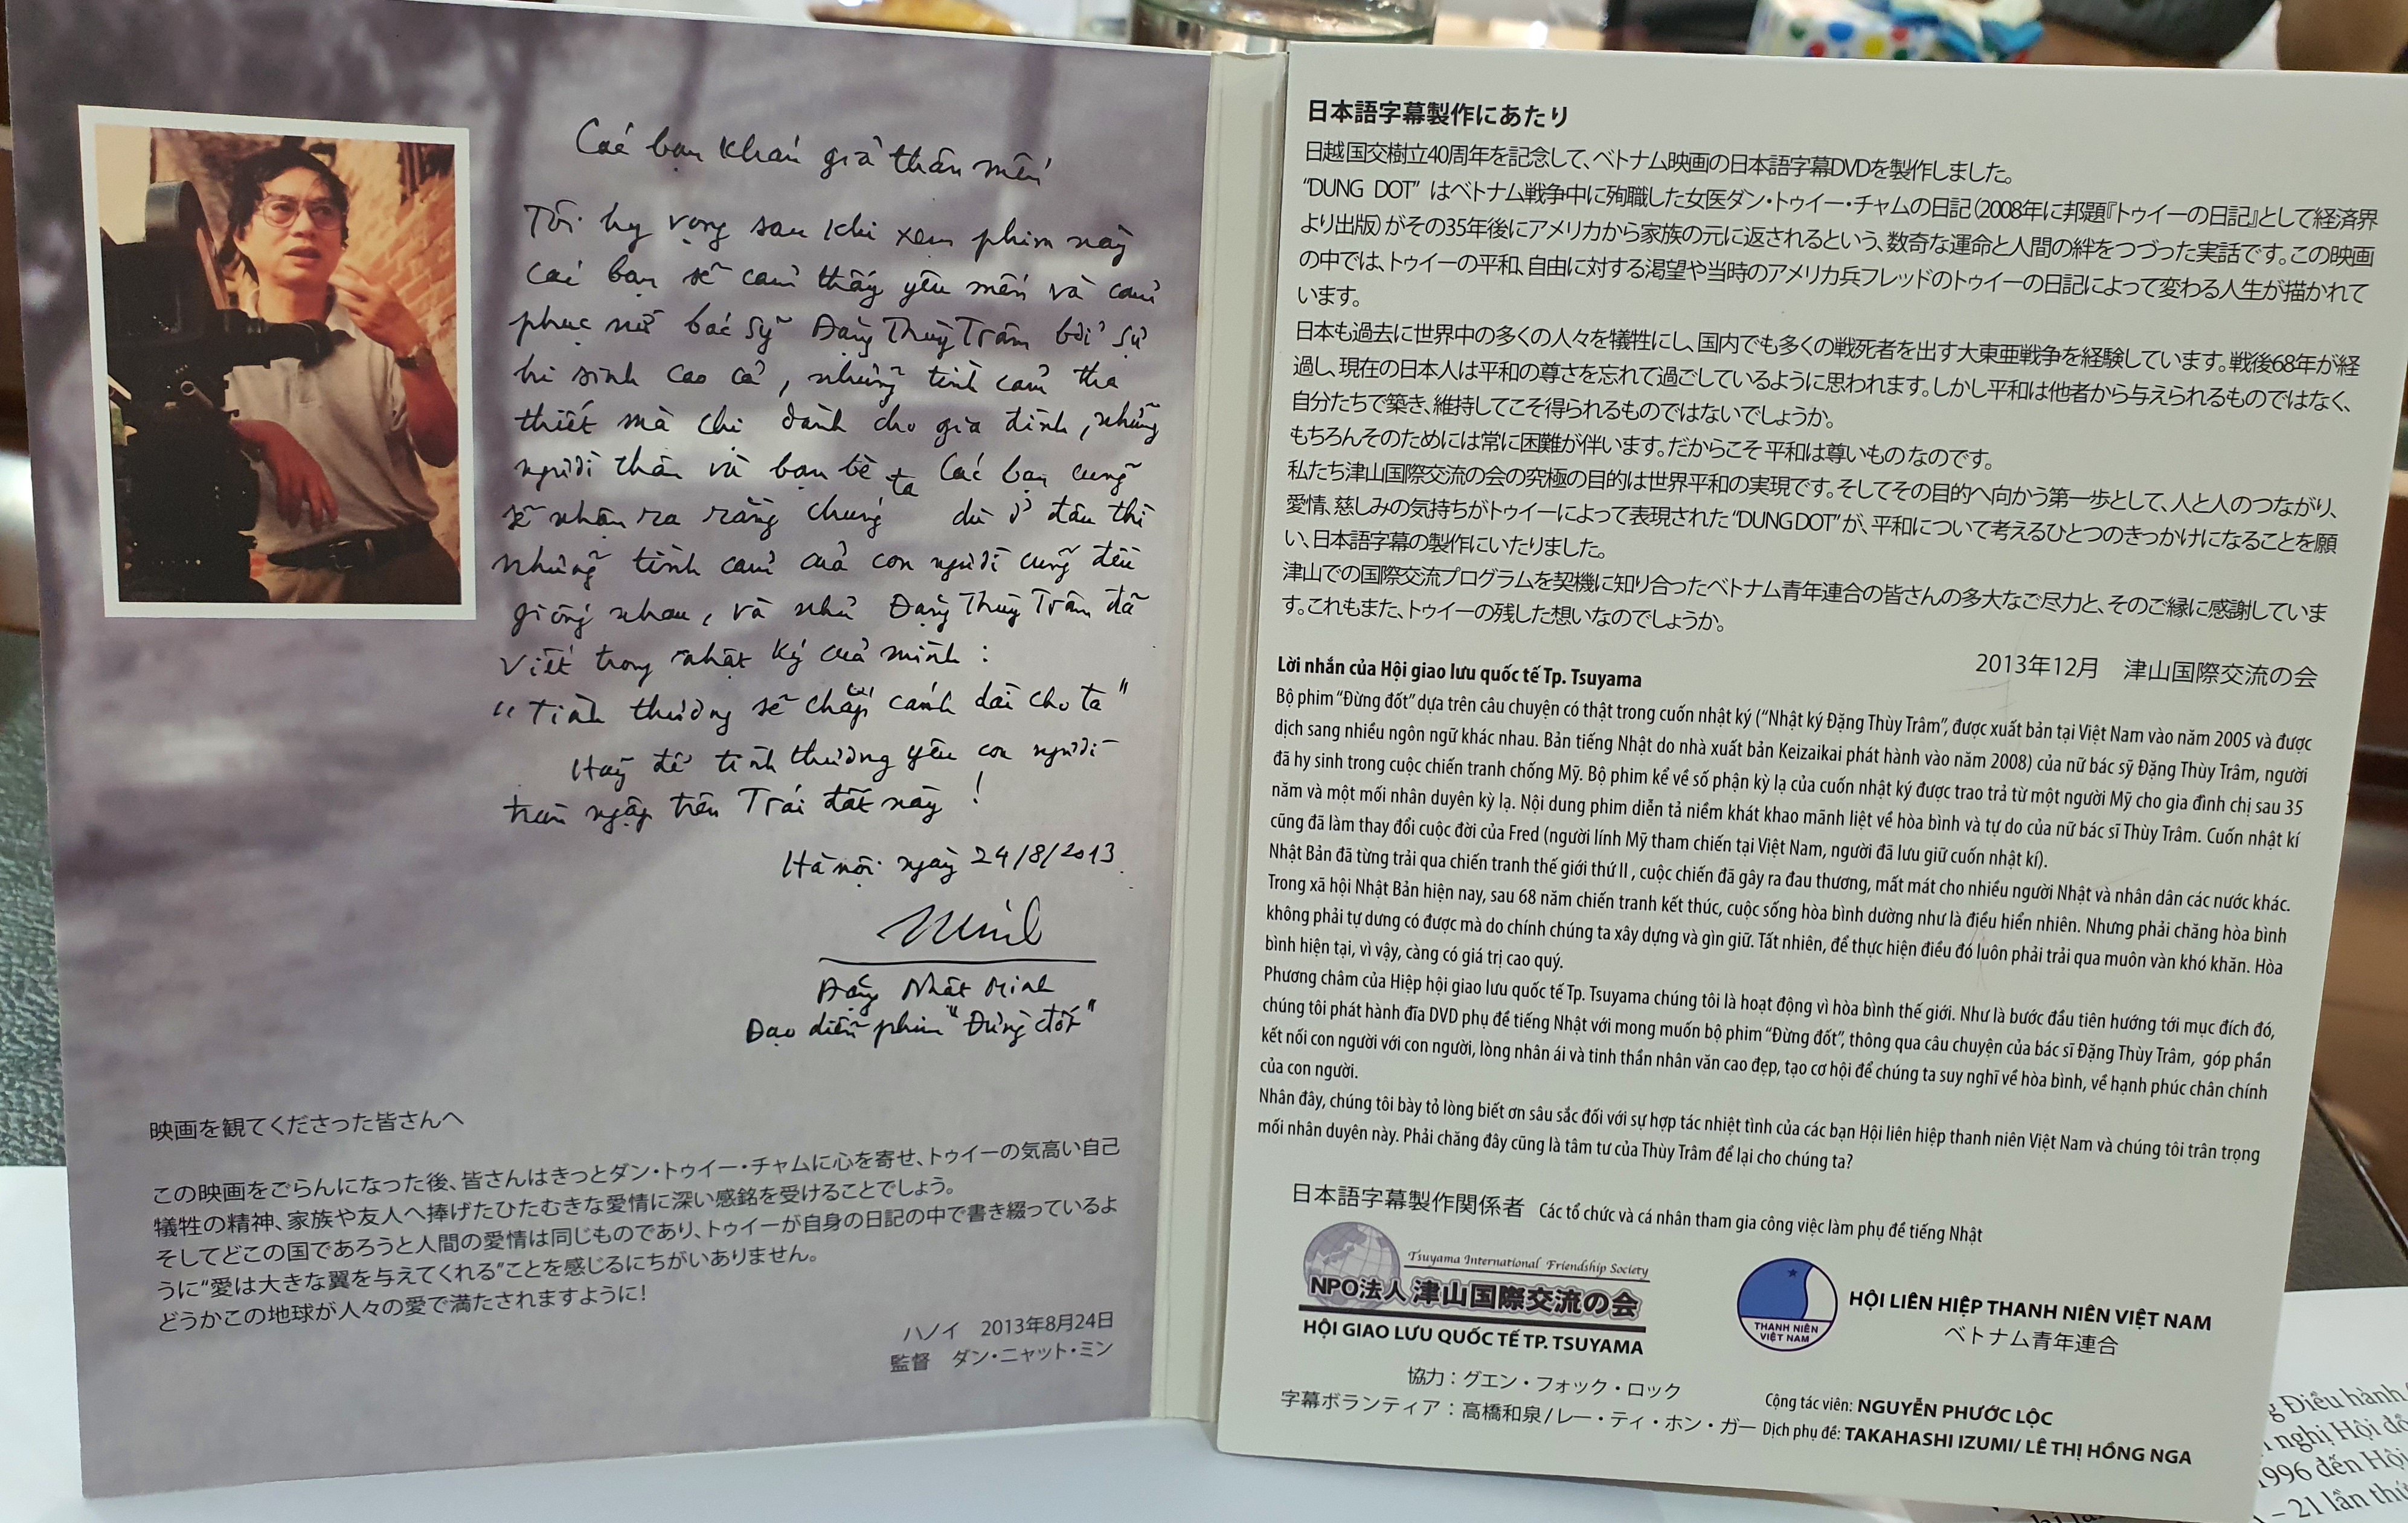 Các bạn khán giả thân mến
Tôi hy vọng sau khi xem phim này
các bạn sẽ cảm thấy yêu mến và cảm
phục nữ bác sỹ Đặng Thùy Trâm bởi sự
hi sinh cao cả, những tình cảm tha
thiết mà chị dành cho gia đình, những
người thân và bạn bè. Các bạn cũng
sẽ nhận ra rằng chúng ta dù ở đâu thì
những tình cảm của con người cũng đều
giống nhau, và như Đặng Thùy Trâm đã
viết trong nhật ký của mình:
“Tình thương sẽ chắp cánh dài cho ta”
Hãy để tình thương yêu con người
tràn ngập trên Trái đất này!
Hà nội ngày 24/8/2013.
Đặng Nhật Minh
Đạo diễn phim “Đừng đốt”
映画を観てくださった皆さんへ
この映画をごらんになった後、皆さんはきっとダン・トゥイー・チャムに心を寄せ、トゥイーの気高い自己
犠牲の精神、家族や友人へ捧げたひたむきな愛情に深い感銘を受けることでしょう。
そしてどこの国であろうと人間の愛情は同じものであり、トゥイーが自身の日記の中で書き綴っているよ
うに“愛は大きな翼を与えてくれる”ことを感じるにちがいありません。
どうかこの地球が人々の愛で満たされますように!
ハノイ　2013年8月24日
監督　ダン・ニャット・ミン
日本語字幕製作にあたり
日越国交樹立40周年を記念して、ベトナム映画の日本語字幕DVDを製作しました。
“DUNG DOT” はベトナム戦争中に殉職した女医ダン・トゥイー・チャムの日記（2008年に邦題『トゥイーの日記』として経済界
より出版）がその35年後にアメリカから家族の元に返されるという、数奇な運命と人間の絆をつづった実話です。この映画
の中では、トゥイーの平和、自由に対する渇望や当時のアメリカ兵フレッドのトゥイーの日記によって変わる人生が描かれて
います。
日本も過去に世界中の多くの人々を犠牲にし、国内でも多くの戦死者を出す大東亜戦争を経験しています。戦後68年が経
過し、現在の日本人は平和の尊さを忘れて過ごしているように思われます。しかし平和は他者から与えられるものではなく、
自分たちで築き、維持してこそ得られるものではないでしょうか。
もちろんそのためには常に困難が伴います。だからこそ平和は尊いものなのです。
私たち津山国際交流の会の究極の目的は世界平和の実現です。そしてその目的へ向かう第一歩として、人と人のつながり、
愛情、慈しみの気持ちがトゥイーによって表現された“DUNG DOT”が、平和について考えるひとつのきっかけになることを願
い、日本語字幕の製作にいたりました。
津山での国際交流プログラムを契機に知り合ったベトナム青年連合の皆さんの多大なご尽力と、そのご縁に感謝していま
す。これもまた、トゥイーの残した想いなのでしょうか。
2013年12月　津山国際交流の会
Lời nhắn của Hội giao lưu quốc tế Tp. Tsuyama
Bộ phim “Đừng đốt” dựa trên câu chuyện có thật trong cuốn nhật ký (“Nhật ký Đặng Thùy Trâm”, được xuất bản tại Việt Nam vào năm 2005 và được
dịch sang nhiều ngôn ngữ khác nhau. Bản tiếng Nhật do nhà xuất bản Keizaikai phát hành vào năm 2008) của nữ bác sỹ Đặng Thùy Trâm, người
đã hy sinh trong cuộc chiến tranh chống Mỹ. Bộ phim kể về số phận kỳ lạ của cuốn nhật ký được trao trả từ một người Mỹ cho gia đình chị sau 35
năm và một mối nhân duyên kỳ lạ. Nội dung phim diễn tả niềm khát khao mãnh liệt về hòa bình và tự do của nữ bác sĩ Thùy Trâm. Cuốn nhật kí
cũng đã làm thay đổi cuộc đời của Fred (người lính Mỹ tham chiến tại Việt Nam, người đã lưu giữ cuốn nhật kí).
Nhật Bản đã từng trải qua chiến tranh thế giới thứ II , cuộc chiến đã gây ra đau thương, mất mát cho nhiều người Nhật và nhân dân các nước khác.
Trong xã hội Nhật Bản hiện nay, sau 68 năm chiến tranh kết thúc, cuộc sống hòa bình dường như là điều hiển nhiên. Nhưng phải chăng hòa bình
không phải tự dưng có được mà do chính chúng ta xây dựng và gìn giữ. Tất nhiên, để thực hiện điều đó luôn phải trải qua muôn vàn khó khăn. Hòa
bình hiện tại, vì vậy, càng có giá trị cao quý.
Phương châm của Hiệp hội giao lưu quốc tế Tp. Tsuyama chúng tôi là hoạt động vì hòa bình thế giới. Như là bước đầu tiên hướng tới mục đích đó,
chúng tôi phát hành đĩa DVD phụ đề tiếng Nhật với mong muốn bộ phim “Đừng đốt”, thông qua câu chuyện của bác sĩ Đặng Thùy Trâm, góp phần
kết nối con người với con người, lòng nhân ái và tinh thần nhân văn cao đẹp, tạo cơ hội để chúng ta suy nghĩ về hòa bình, về hạnh phúc chân chính
của con người.
Nhân đây, chúng tôi bày tỏ lòng biết ơn sâu sắc đối với sự hợp tác nhiệt tình của các bạn Hội liên hiệp thanh niên Việt Nam và chúng tôi trân trọng
mối nhân duyên này. Phải chăng đây cũng là tâm tư của Thùy Trâm để lại cho chúng ta?
日本語字幕製作関係者 Các tổ chức và cá nhân tham gia công việc làm phụ đề tiếng Nhật
Tsuyama International Friendship Society
NPO法人 津山国際交流の会
HỘI GIAO LƯU QUỐC TẾ TP. TSUYAMA
THANH NIÊN
VIỆT NAM
HỘI LIÊN HIỆP THANH NIÊN VIỆT NAM
ベトナム青年連合
協力：グエン・フォック・ロック
Cộng tác viên: NGUYỄN PHƯỚC LỘC
字幕ボランティア：高橋和泉/レー・ティ・ホン・ガー
Dịch phụ đề: TAKAHASHI IZUMI/ LÊ THỊ HỒNG NGA
Điều hành
nghị Hội
1996 đến Hội
– 21 lần thứ